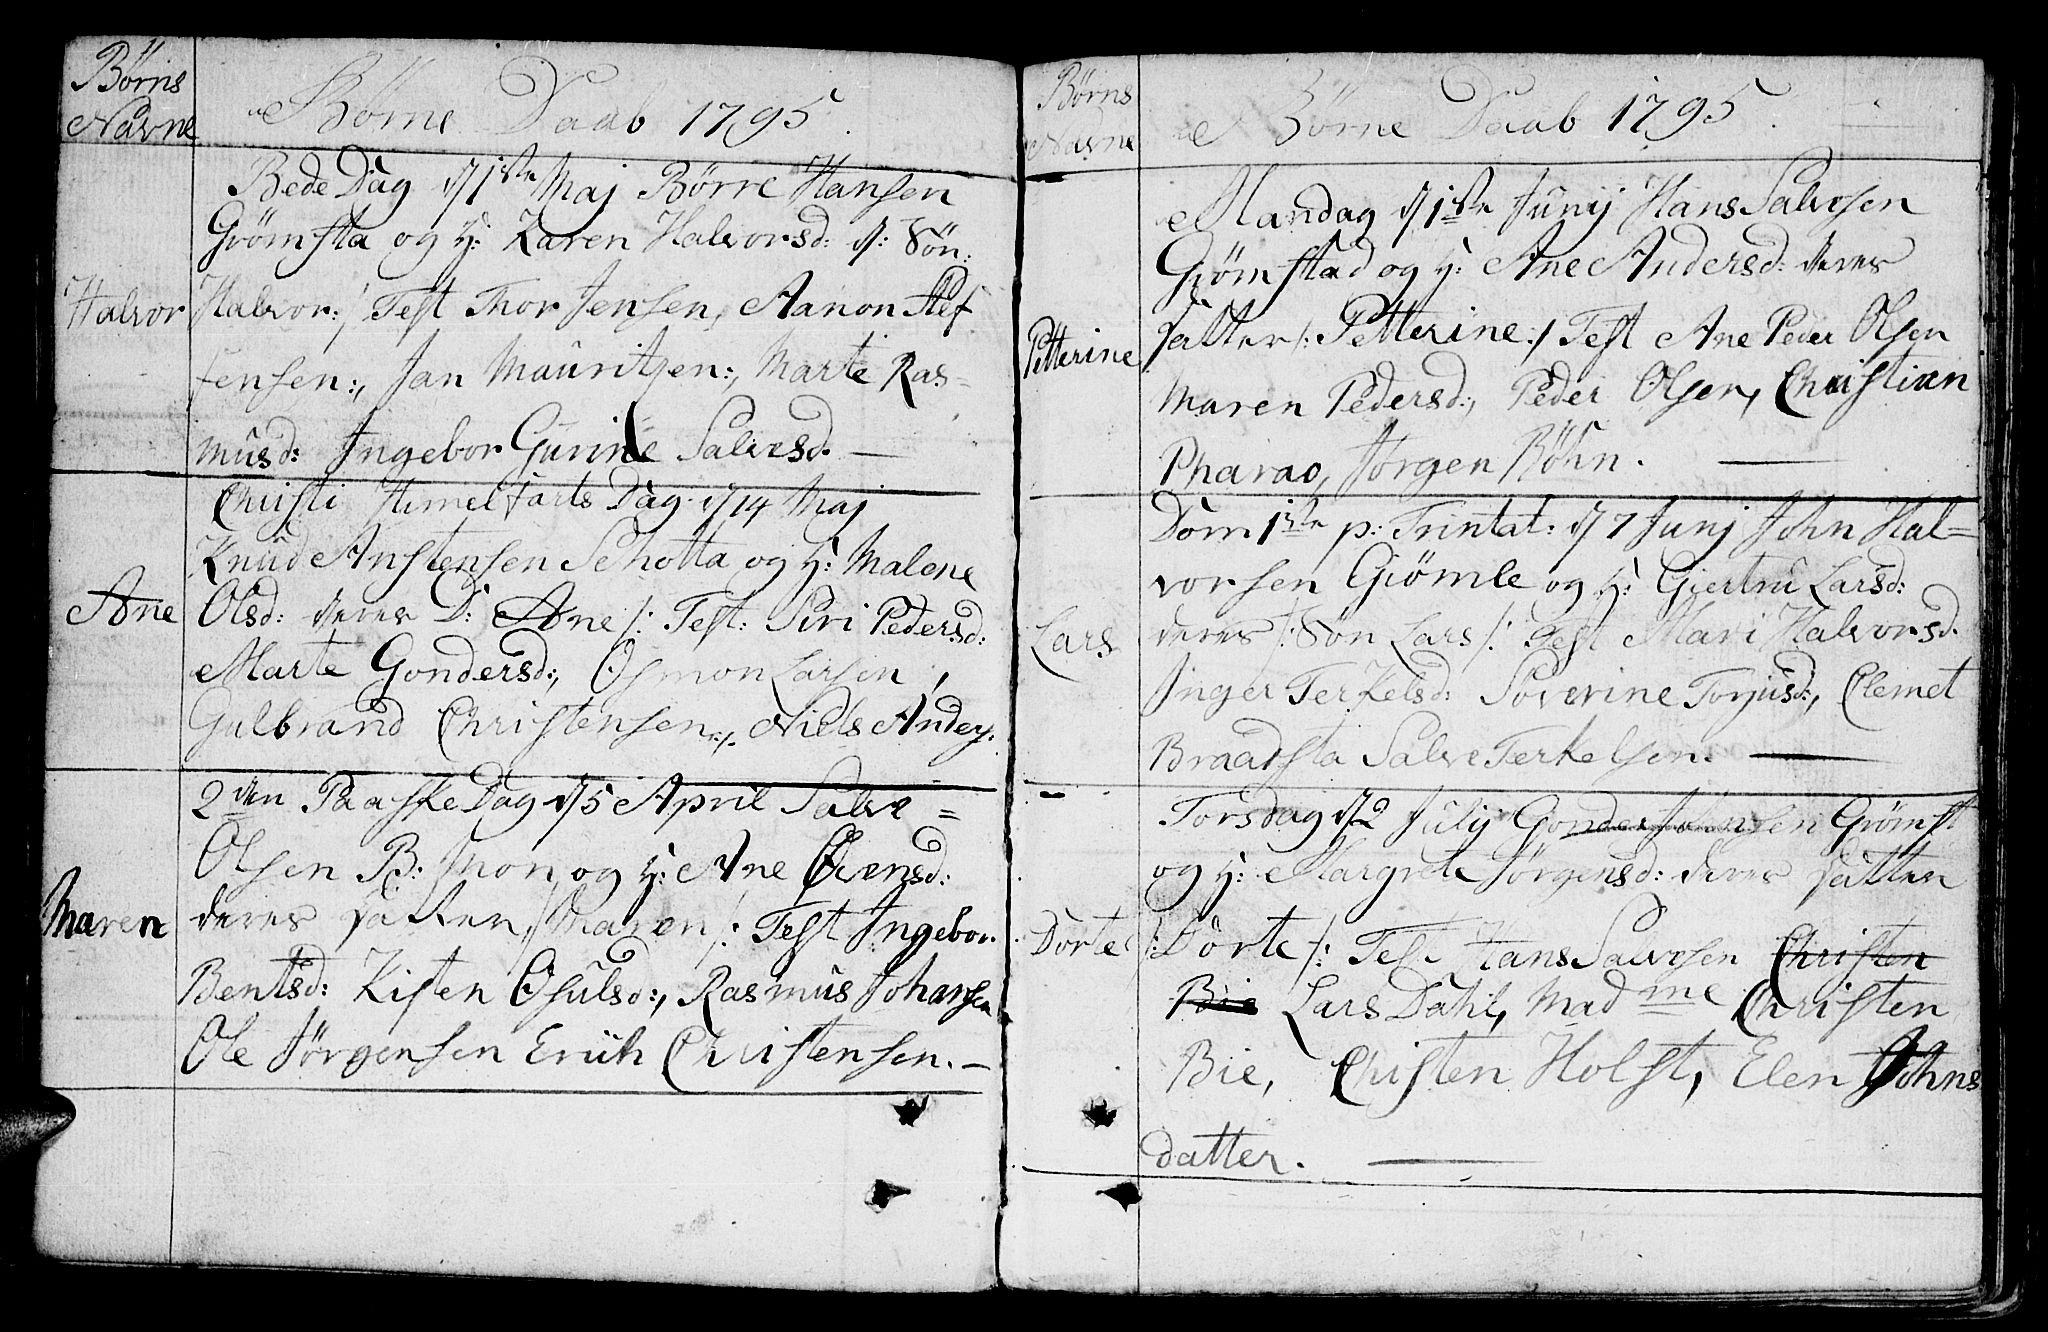 Børns
Navne
Børne Daab 1795.
Bede Dag d 1ste Maj Børre Hansen
Grømsta og H: Karen Halvorsd: d: Søn:
Halvor
Halvor:/ Test Thor Jensen, Aanon Stef
fensen:, Jan Mauritzen:, Marte Ras=
musd: Ingebor Gurine Salvesd. —
Christi Himelfarts Dag d 14 Maj
Knud Anstensen Schotta og H: Malene
Ane
Olsd: deres D: Ane /: Test: Siri Pedersd:
Marte Gondersd:, Osmon Larsen,
Gulbrand Christensen ./. Niels Anders:
2den Paaske Dag d 5 April Salve =
Olsen B: Mon og H: Ane Evensd:
Maren
deres datter /: Maren /: Test Ingebor
Bentsd: Kisten Osulsd:, Rasmus Johansen
Ole Jørgensen Erich Christensen. —
Børns
Navne
Børne Daab 1795.
Mandag d 1ste Junij Hans Salvesen
Grømstad og H: Ane Andersd: deres
Petterine
datter /: Petterine :/ Test Ane Peder Olsen
Maren Pedersd:, Peder Olsen, Christian
Pharao, Jørgen Bøhn. —
Dom 1ste p: Trintat: d 7 Junj John Hal=
vorsen Giømle og H: Giertru Larsd:
Lars
deres /: Søn Lars /: Test Mari Halvorsd.
Inger Terkelsd: Soverine Torjusd:, Clemet
Braadsta Salve Terkelsen. —
Torsdag d 2 Julij Gonder Johnsen Grømst
og H: Margrete Jørgensd: deres datter
Dorte
/: Dorte /: Test Hans Salvesen Christen
Bie Lars Dahl, Madme Christen
Bie, Christen Holst, Elen Johns
datter. —